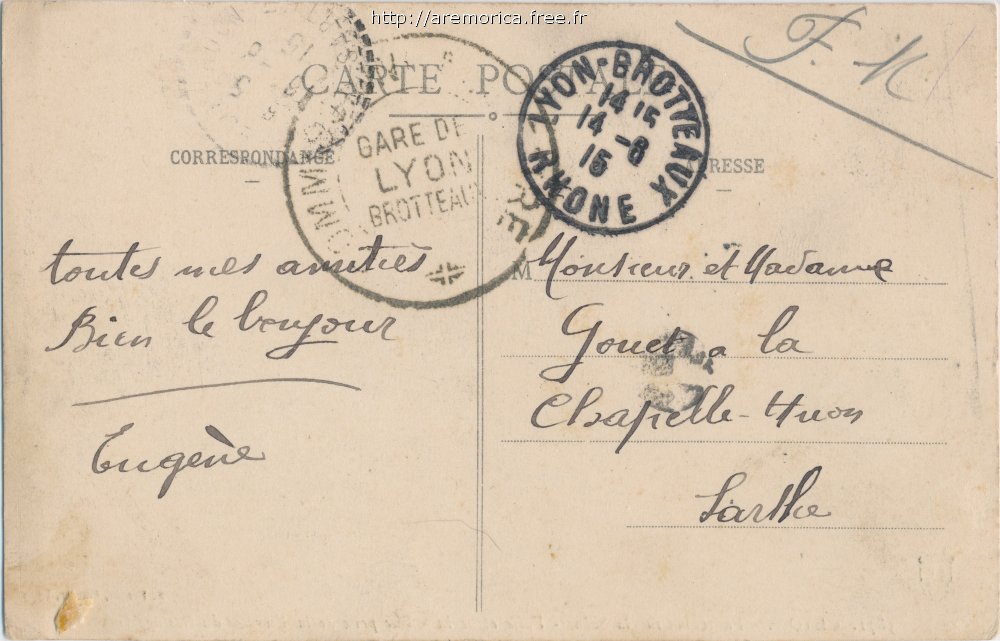 http://aremorica.free.fr
F. M
CARTE POSTALE
GARE DE
LYON
BROTTEAUX
LYON-BROTTEAUX
14 15
14 -8
15
RHONE
CORRESPONDANCE
ADRESSE
toutes mes amitiés
Bien le bonjour
Eugène
M Monsieur et Madame
Gouet a la
Chapelle-Huon
Sarthe